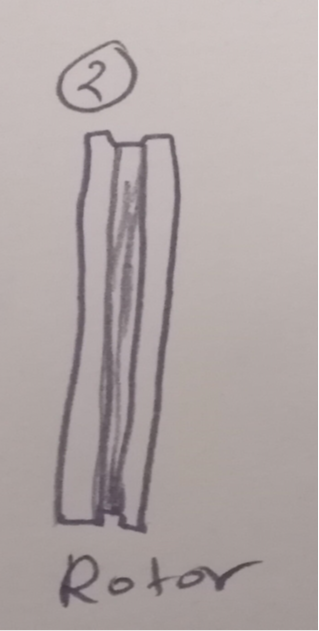 2
Rotor